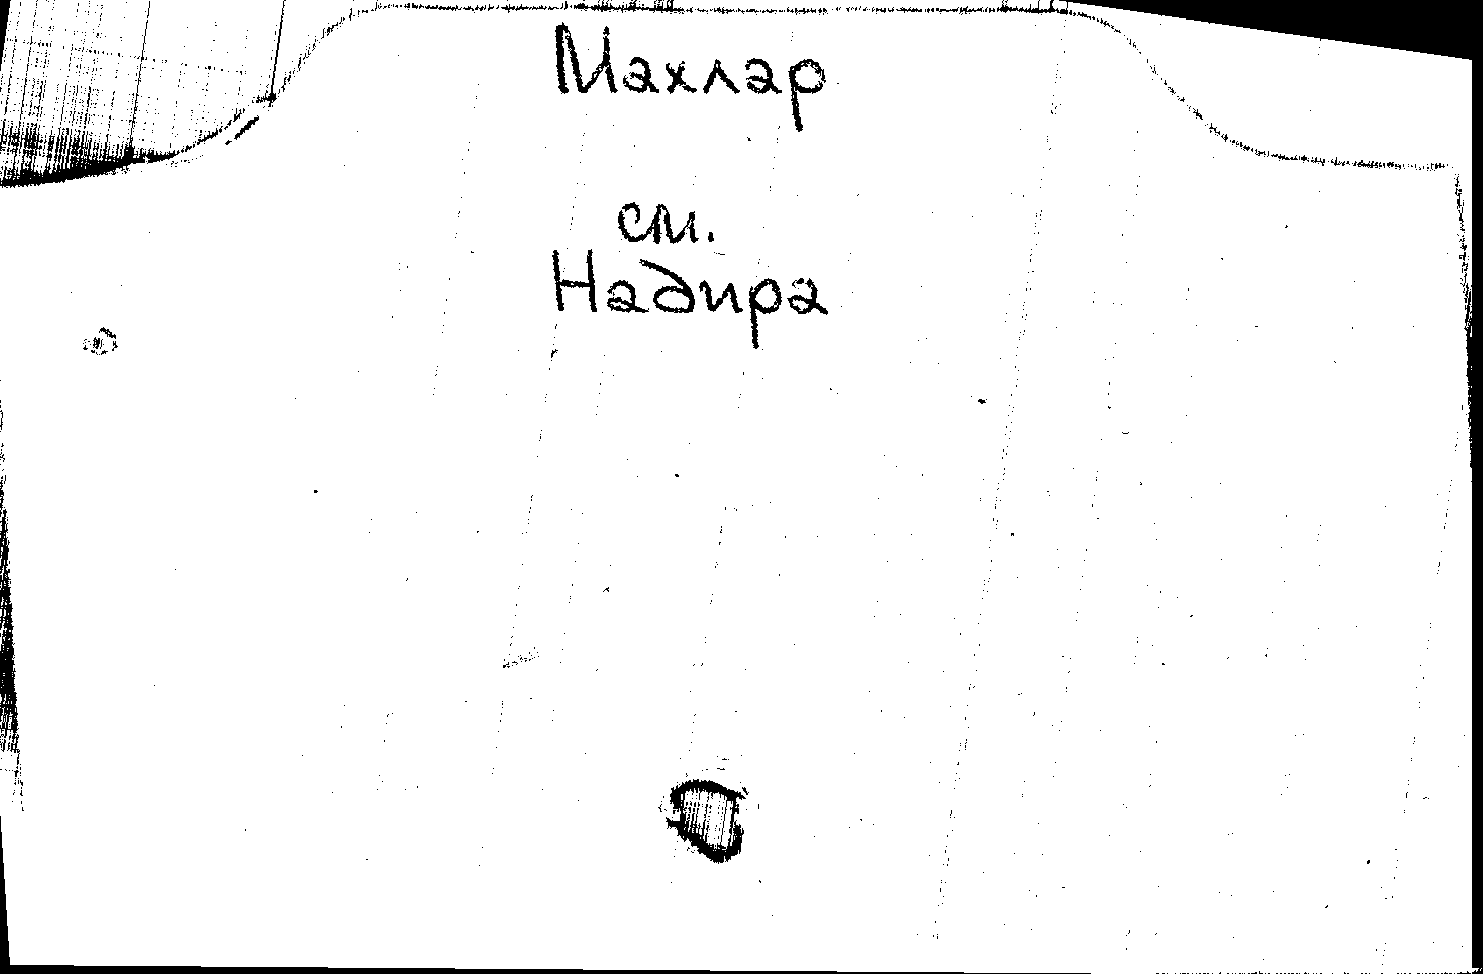 Махлар
см.
Надира